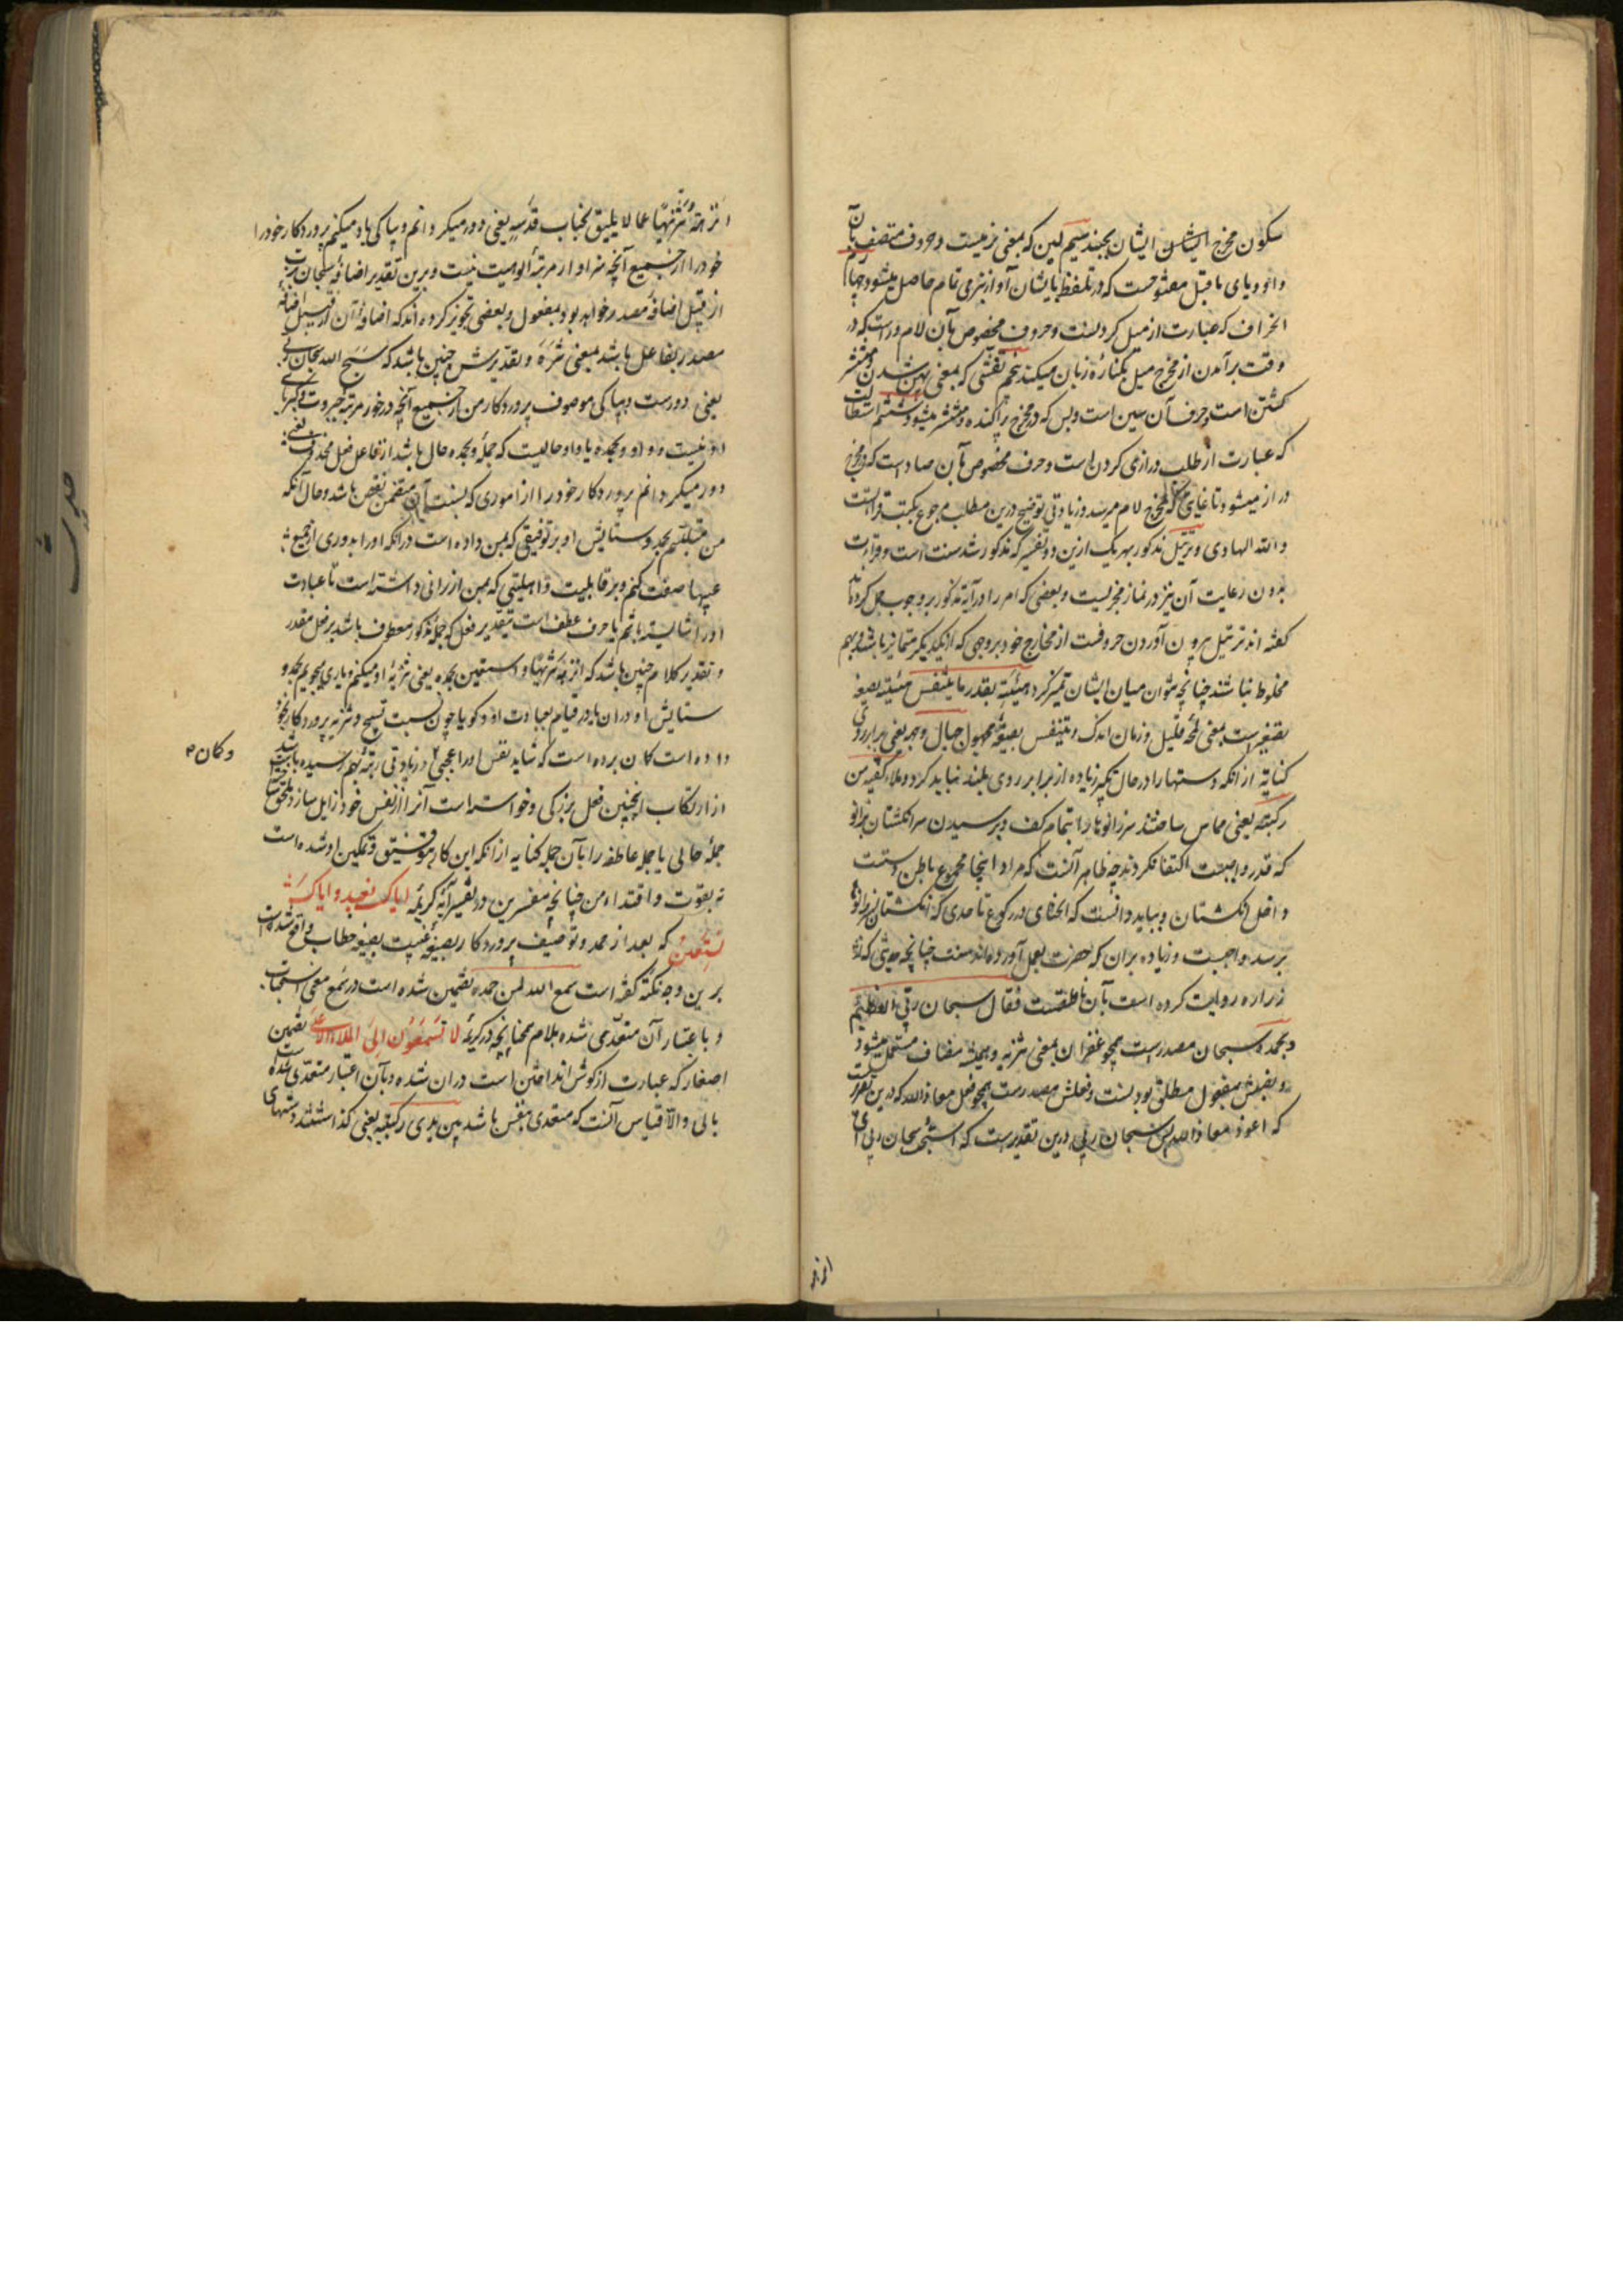 سکون مخرج ایشان بجنبد سیم لین که بمعنی نرمیست و حروف متصف بآن
واو و یای ما قبل مفتوحست که در تلفظ بایشان آواز نرمی تمام حاصل میشود چهارم
انحراف که عبارت از میل کردنست و حروف مخصوص بآن لام و راست که در
وقت برآمدن از مخرج میل بکناره زبان میکند پنجم تفشی که بمعنی پهن شدن و منتشر
گشتن است و حرف آن سین است و بس که در مخرج پراکنده و منتشر میشود ششم استطالت
که عبارت از طلب درازی کردن است و حرف مخصوص بآن صاد است که در مخرج
دراز میشود تا غایتی که بمخرج لام میرسد و زیادتی توضیح درین مطلب مرجوع بکتب قرائتست
والله الهادی و ترتیل مذکور بهر یک ازین دو تفسیر که مذکور شد سنت است و قراءت
بدون رعایت آن نیز در نماز مجزیست و بعضی که امر را در آیه مذکور بر وجوب حمل کرده‌اند
گفته اند ترتیل بیرون آوردن حروفست از مخارج خود بر وجهی که از یکدیگر متمایز باشند و بهم
مخلوط نباشند چنانچه بتوان میان ایشان تمیز کرد هنیئة بقدر ما یتنفس هنیئة بصیغه
تصغیرست بمعنی لمحه قلیل و زمان اندک و یتنفس بصیغه مجهول حیال وجهه یعنی برابر روی
کنایه از آنکه دستها را در حال تکبیر زیاده از برابر روی بلند نباید کرد و ملأ کفیه من
رکبتیه یعنی مماس ساختند سر زانوها را بتمام کف و برسیدن سر انگشتان بزانو
که قدر واجبست اکتفا نکردند چه ظاهر آنست که مراد اینجا مجموع باطن دست
و اصل انگشتان و بباید دانست که انحنای در رکوع تا حدی که انگشتان بزانوها
برسد واجبست و زیاده بر آن که حضرت بعمل آورده‌اند سنت چنانچه حدیثی که
زراره روایت کرده است بآن ناطقست فقال سبحان ربی العظیم
و بحمده سبحان مصدرست همچو غفران بمعنی تنزیه و همیشه مضاف مستعمل میشود
و نصبش بمفعول مطلق بودنست و فعلش مصدرست همچو فعل معاذ الله که درین تقدیر
که اعوذ معاذ الله پس سبحان ربی درین تقدیرست که اسبح سبحان ربی ای
انزه
انزهه تنزیها عما لا یلیق بجناب قدسه یعنی دور میگردانم و بپاکی یاد میکنم پروردگار خود را
خود را از جمیع آنچه سزاوار مرتبه الوهیت نیست و برین تقدیر اضافه سبحان برب
از قبیل اضافه مصدر خواهد بود بمفعول و بعضی تجویز کرده اند که اضافه آن از قبیل اضافه
مصدر بفاعل باشد بمعنی تنزه و تقدیرش چنین باشد که سبح الله سبحان ربی
یعنی دورست و بپاکی موصوف پروردگار من از جمیع آنچه در خور مرتبه جبروت و کبریای
او نیست و واو و بحمده یا واو حالیست که جمله و بحمده حال باشد از فاعل فعل محذوف یعنی
دور میگردانم پروردگار خود را از اموری که نسبت آن متضمن نقص باشد و حال آنکه
من متلبسم بحمد و ستایش او بر توفیقی که بمن داده است در آنکه او را بدوری از جمیع
عیبها صفت کنم و بر قابلیت و اهلیتی که بمن ارزانی داشته است تا عبادت
او را شایسته باشم یا حرف عطف است بتقدیر فعل که جمله مذکور معطوف باشد بر فعل مقدر
و تقدیر کلام چنین باشد که انزهه تنزیها و استعین بحمده یعنی تنزیه او میکنم و یاری میجویم بحمد و
ستایش او در آن باور قیام بعبادت او و گویا چون نسبت تسبیح و تنزیه پروردگار بخود
داده است گمان برده است که شاید نفس او را عجبی و زیادتی رتبه بهم رسیده باشد
وکان
از ارتکاب اینچنین فعل بزرگی و خواسته است آنرا از نفس خود زایل سازد بملحق ساختن
جمله حالی یا جمله عاطفه را بآن جمله کنایه از آنکه این کار بتوفیق و تمکین او شده است
نه بقوت و اقتداء من چنانچه مفسرین در تفسیر آیه کریمه ایاک نعبد و ایاک
نستعین که بعد از حمد و توصیف پروردگار بصیغه غیبت بصیغه خطاب واقع شده است
برین وجه نکته گفته است سمع الله لمن حمده تضمین شده است در سمع معنی استجاب
و باعتبار آن متعدی شده بلام همچنانچه در کریمه لا یسمعون الی الملاء الاعلی تضمین
اصغا که عبارت از گوش انداختن است در آن شده و بآن اعتبار متعدی شده است
بالی و الا قیاس آنست که متعدی بنفس باشد بین یدی رکبتیه یعنی گذاشتند دستهای
حدیث